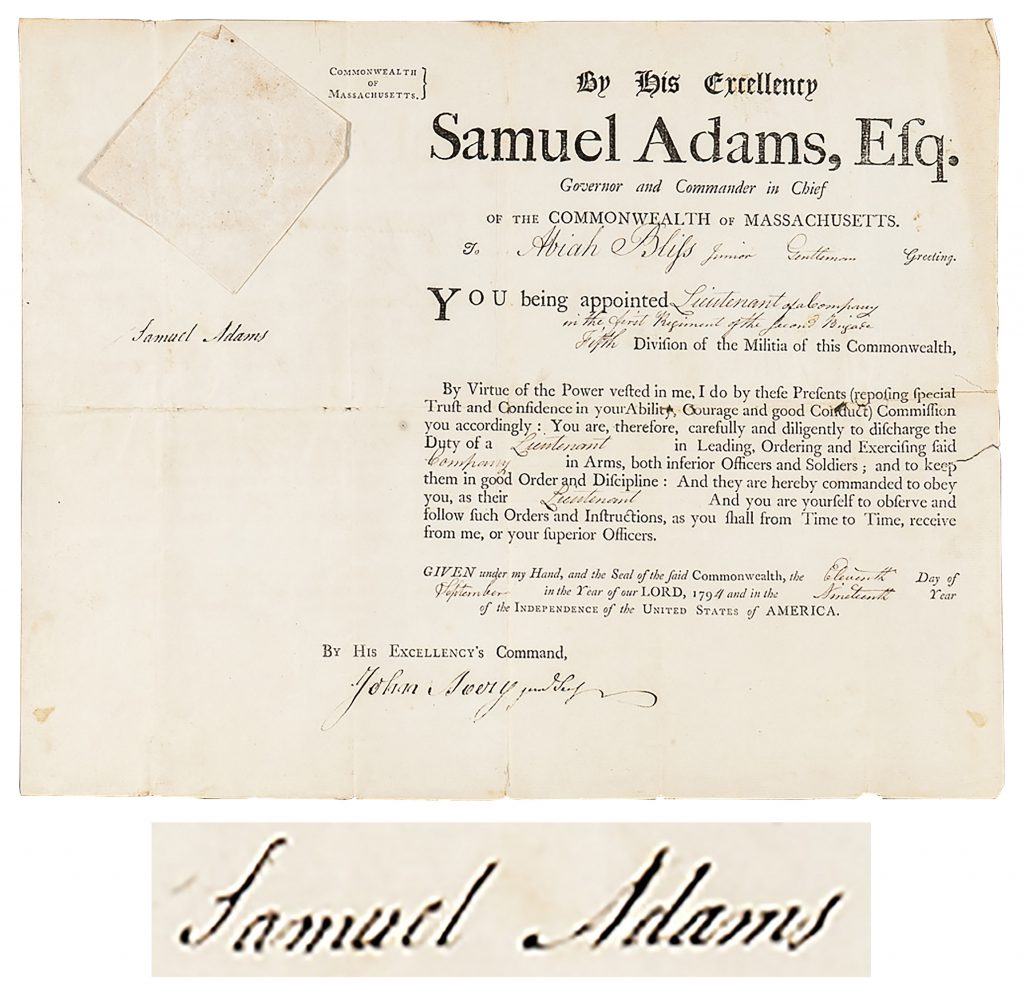 COMMONWEALTH
OF
MASSACHUSETTS.
By His Excellency
Samuel Adams, Eſq.
Governor and Commander in Chief
OF THE COMMONWEALTH OF MASSACHUSETTS.
To Abiah Bliſs junior Gentleman Greeting.
YOU being appointed Lieutenant of a Company
in the first Regiment of the Second Brigade
Fifth Division of the Militia of this Commonwealth,
Samuel Adams
By Virtue of the Power veſted in me, I do by theſe Preſents (repoſing ſpecial
Truſt and Confidence in your Ability, Courage and good Conduct) Commiſſion
you accordingly : You are, therefore, carefully and diligently to diſcharge the
Duty of a Lieutenant in Leading, Ordering and Exerciſing ſaid
Company in Arms, both inferior Officers and Soldiers ; and to keep
them in good Order and Diſcipline : And they are hereby commanded to obey
you, as their Lieutenant And you are yourſelf to obſerve and
follow ſuch Orders and Inſtructions, as you ſhall from Time to Time, receive
from me, or your ſuperior Officers.
GIVEN under my Hand, and the Seal of the ſaid Commonwealth, the Eleventh Day of
September in the Year of our LORD, 1794 and in the Nineteenth Year
of the INDEPENDENCE of the UNITED STATES of AMERICA.
BY HIS EXCELLENCY'S Command,
John Avery
Samuel Adams